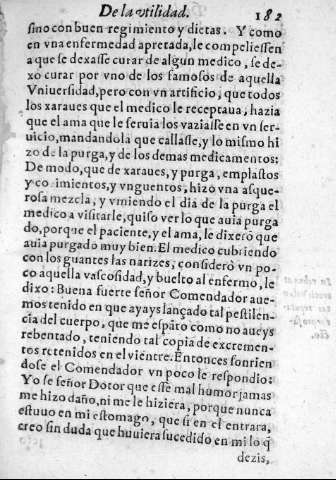 De la vtilidad. 182
sino con buen regimiento y dietas. Y como
en vna enfermedad apretada, le compeliessen
a que se dexasse curar de algun medico, se de-
xo curar por vno de los famosos de aquella
Vniuersidad, pero con vn artificio, que todos
los xaraues que el medico le receptaua, hazia
que el ama que le seruia los vaziasse en vn ser-
uicio, mandandola que callasse, y lo mismo hi
zo de la purga, y de los demas medicamentos:
De modo, que de xaraues, y purga, emplastos
y cozimientos, y vnguentos, hizo vna asque-
rosa mezcla, y viniendo el dia de la purga el
medico a visitarle, quiso ver lo que auia purga
do, porque el paciente, y el ama, le dixerõ que
auia purgado muy bien. El medico cubriendo
con los guantes las narizes, considerò vn po-
co aquella vascosidad, y buelto al enfermo, le
dixo: Buena fuerte señor Comendador aue-
mos tenido en que ayays lançado tal pestilen-
cia del cuerpo, que me espãto como no aueys
rebentado, teniendo tal copia de excremen-
tos retenidos en el vientre. Entonces sonrien
dose el Comendador vn poco le respondio:
Yo se señor Dotor que esse mal humor jamas
me hizo daño, ni me le hiziera, porque nunca
estuuo en mi estomago, que si en el entrara,
creo sin duda que huuiera sucedido en mi lo q̃
dezis,